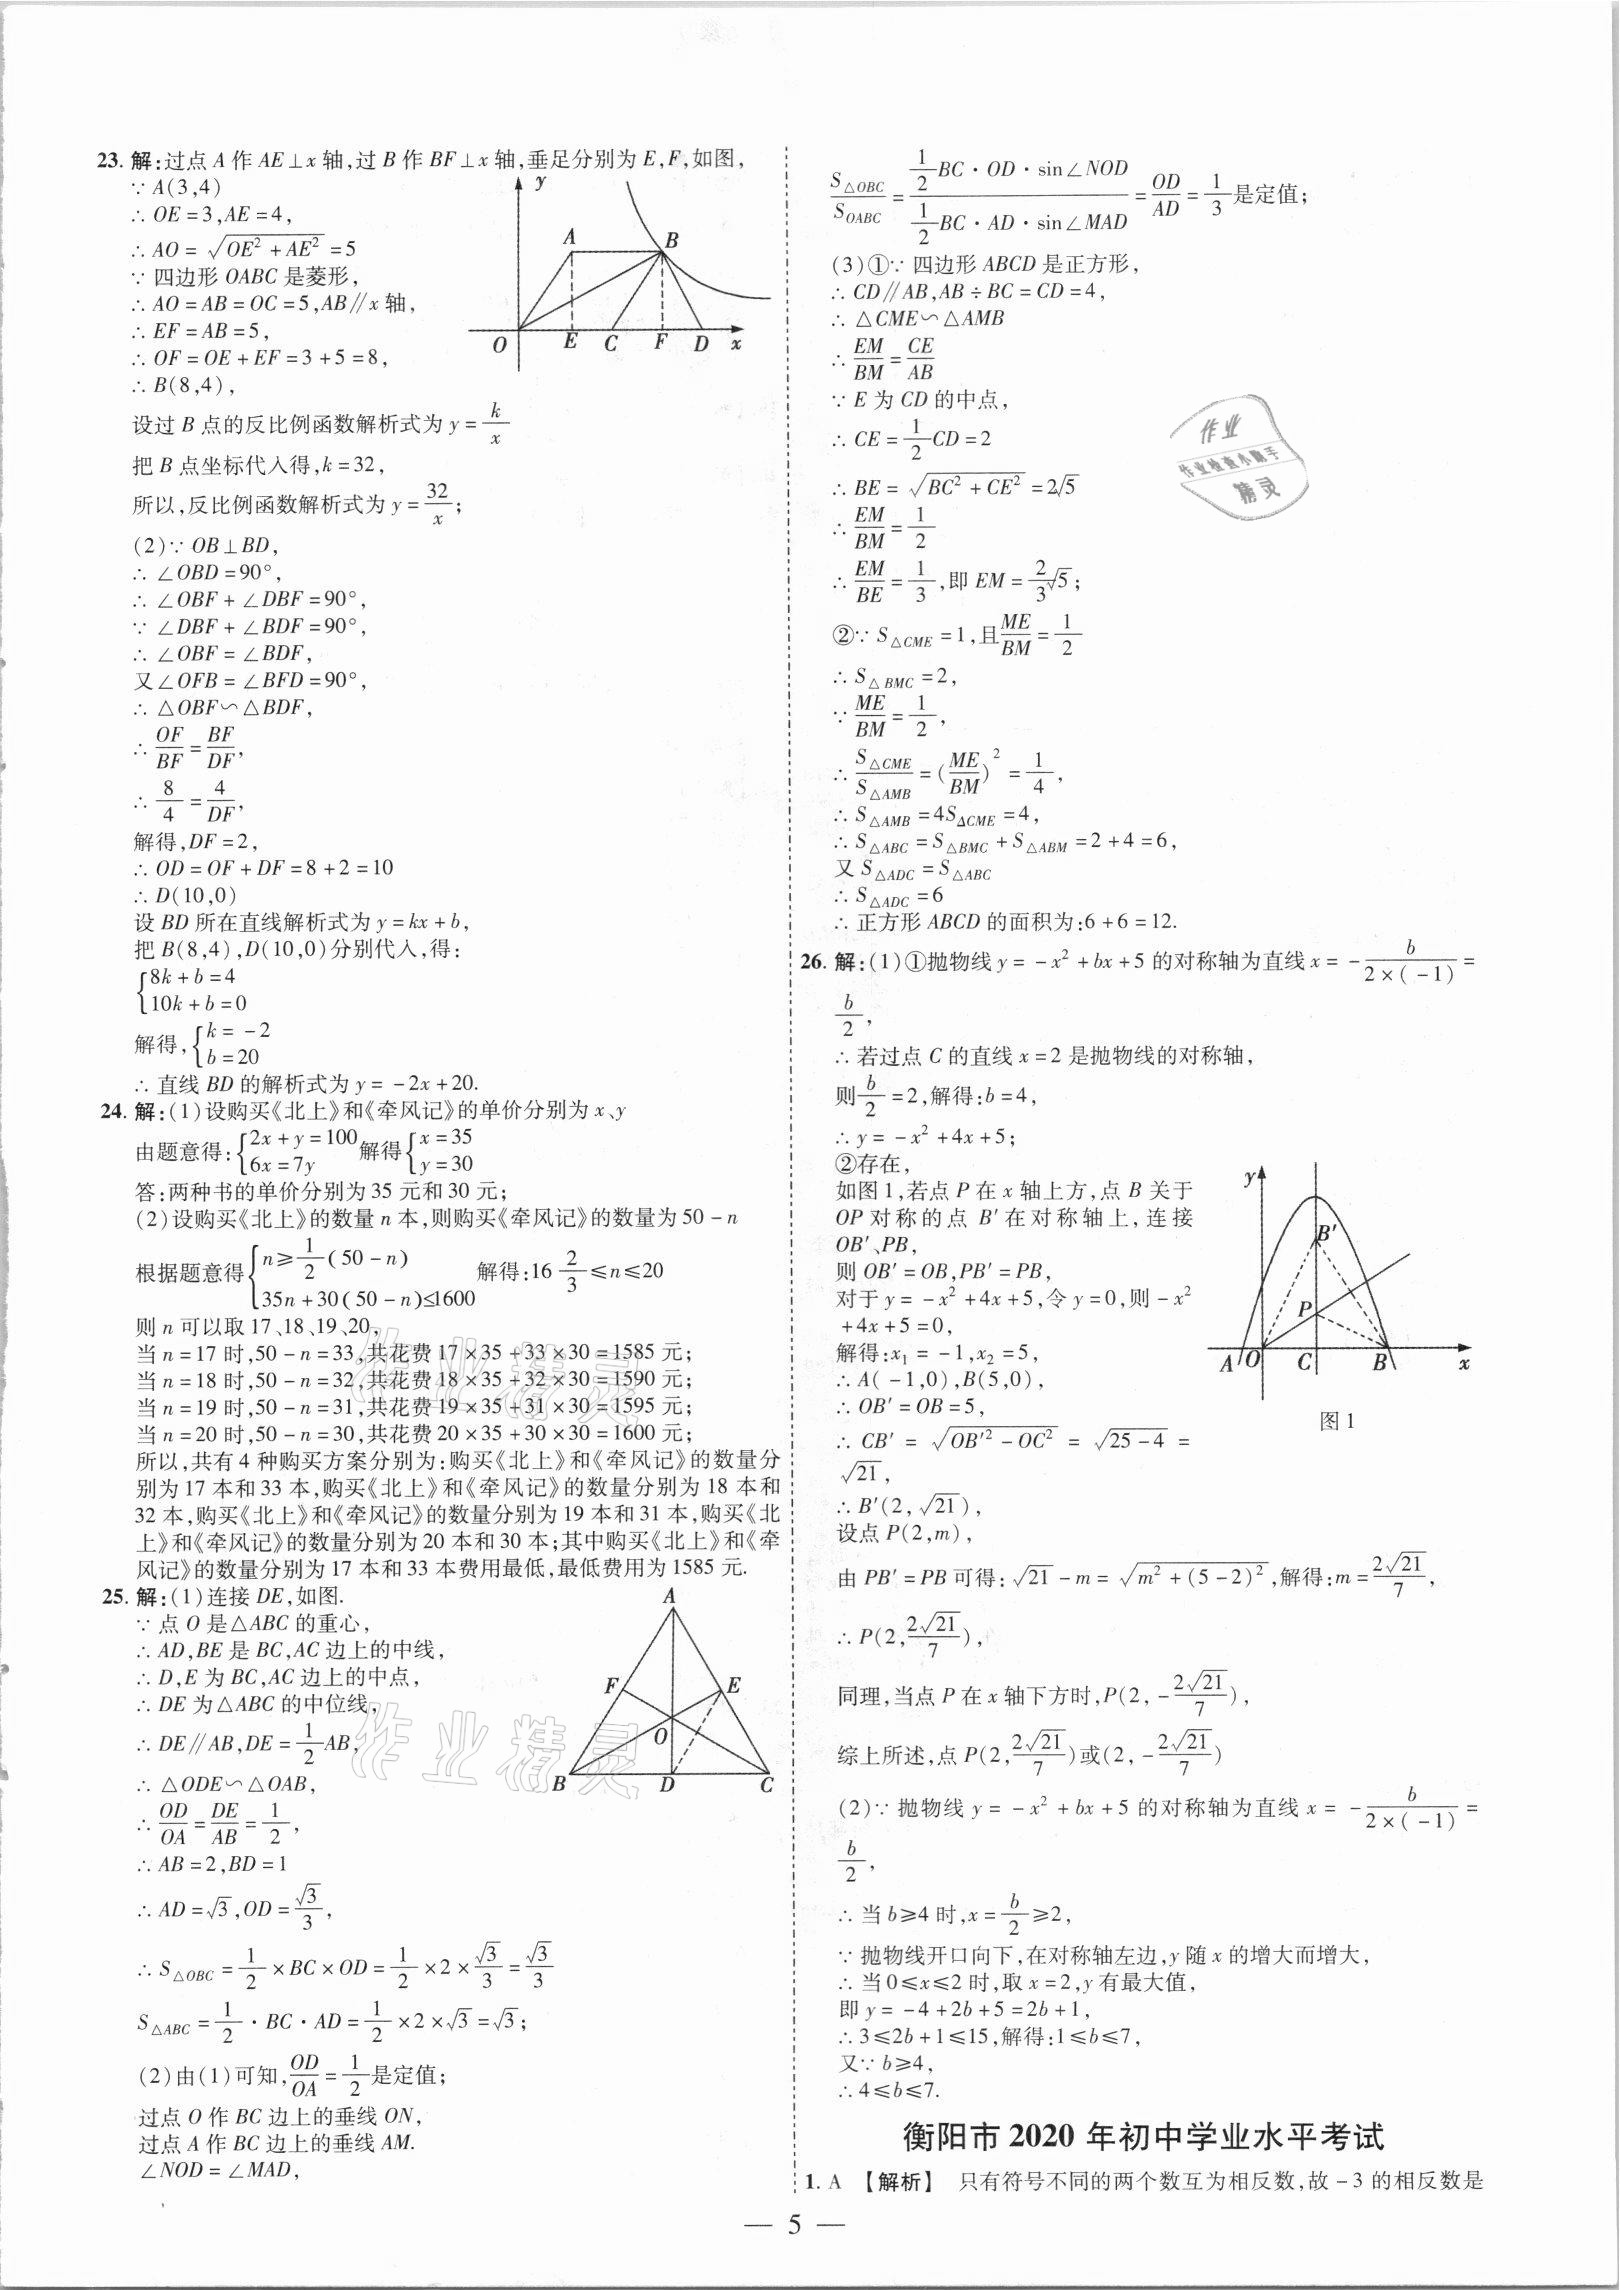 23. 解:过点 A 作 AE⊥x 轴,过 B 作 BF⊥x 轴,垂足分别为 E,F,如图,
∵ A(3,4)
∴ OE=3,AE=4,
∴ AO=√(OE²+AE²)=5
∵ 四边形 OABC 是菱形,
∴ AO=AB=OC=5,AB∥x 轴,
∴ EF=AB=5,
∴ OF=OE+EF=3+5=8,
∴ B(8,4),
y
A B
O E C F D x
设过 B 点的反比例函数解析式为 y=k/x
把 B 点坐标代入得,k=32,
所以,反比例函数解析式为 y=32/x;
(2)∵ OB⊥BD,
∴ ∠OBD=90°,
∴ ∠OBF+∠DBF=90°,
∵ ∠DBF+∠BDF=90°,
∴ ∠OBF=∠BDF,
又∠OFB=∠BFD=90°,
∴ △OBF∽△BDF,
∴ OF/BF=BF/DF,
∴ 8/4=4/DF,
解得,DF=2,
∴ OD=OF+DF=8+2=10
∴ D(10,0)
设 BD 所在直线解析式为 y=kx+b,
把 B(8,4),D(10,0)分别代入,得:
{8k+b=4
10k+b=0
解得,{k=-2
b=20
∴ 直线 BD 的解析式为 y=-2x+20.
24. 解:(1)设购买《北上》和《牵风记》的单价分别为 x、y
由题意得:{2x+y=100 6x=7y 解得{x=35 y=30
答:两种书的单价分别为 35 元和 30 元;
(2)设购买《北上》的数量 n 本,则购买《牵风记》的数量为 50-n
根据题意得{n≥1/2(50-n) 35n+30(50-n)≤1600 解得:16 2/3≤n≤20
则 n 可以取 17、18、19、20,
当 n=17 时,50-n=33,共花费 17×35+33×30=1585 元;
当 n=18 时,50-n=32,共花费 18×35+32×30=1590 元;
当 n=19 时,50-n=31,共花费 19×35+31×30=1595 元;
当 n=20 时,50-n=30,共花费 20×35+30×30=1600 元;
所以,共有 4 种购买方案分别为:购买《北上》和《牵风记》的数量分
别为 17 本和 33 本,购买《北上》和《牵风记》的数量分别为 18 本和
32 本,购买《北上》和《牵风记》的数量分别为 19 本和 31 本,购买《北
上》和《牵风记》的数量分别为 20 本和 30 本;其中购买《北上》和《牵
风记》的数量分别为 17 本和 33 本费用最低,最低费用为 1585 元.
作业精灵
25. 解:(1)连接 DE,如图.
∵ 点 O 是△ABC 的重心,
∴ AD,BE 是 BC,AC 边上的中线,
∴ D,E 为 BC,AC 边上的中点,
∴ DE 为△ABC 的中位线,
∴ DE∥AB,DE=1/2AB,
∴ △ODE∽△OAB,
∴ OD/OA=DE/AB=1/2,
∴ AB=2,BD=1
∴ AD=√3,OD=√3/3,
A
F E
O
B D C
作业精灵
∴ S△OBC=1/2×BC×OD=1/2×2×√3/3=√3/3
S△ABC=1/2·BC·AD=1/2×2×√3=√3;
(2)由(1)可知,OD/OA=1/2是定值;
过点 O 作 BC 边上的垂线 ON,
过点 A 作 BC 边上的垂线 AM.
∠NOD=∠MAD,
S△OBC/SOABC=(1/2BC·OD·sin∠NOD)/(1/2BC·AD·sin∠MAD)=OD/AD=1/3是定值;
(3)①∵ 四边形 ABCD 是正方形,
∴ CD∥AB,AB÷BC=CD=4,
∴ △CME∽△AMB
∴ EM/BM=CE/AB
∵ E 为 CD 的中点,
∴ CE=1/2CD=2
∴ BE=√(BC²+CE²)=2√5
∴ EM/BM=1/2
∴ EM/BE=1/3,即 EM=2/3√5;
作业
作业检查小助手
精灵
②∵ S△CME=1,且ME/BM=1/2
∴ S△BMC=2,
∵ ME/BM=1/2,
∴ S△CME/S△AMB=(ME/BM)²=1/4,
∴ S△AMB=4S△CME=4,
∴ S△ABC=S△BMC+S△ABM=2+4=6,
又 S△ADC=S△ABC
∴ S△ADC=6
∴ 正方形 ABCD 的面积为:6+6=12.
26. 解:(1)①抛物线 y=-x²+bx+5 的对称轴为直线 x=-b/(2×(-1))=
b/2,
∴ 若过点 C 的直线 x=2 是抛物线的对称轴,
则b/2=2,解得:b=4,
∴ y=-x²+4x+5;
②存在,
如图 1,若点 P 在 x 轴上方,点 B 关于
OP 对称的点 B′在对称轴上,连接
OB′、PB,
则 OB′=OB,PB′=PB,
对于 y=-x²+4x+5,令 y=0,则-x²
+4x+5=0,
解得:x₁=-1,x₂=5,
∴ A(-1,0),B(5,0),
∴ OB′=OB=5,
∴ CB′=√(OB′²-OC²)=√(25-4)=
√21,
∴ B′(2,√21),
设点 P(2,m),
y
B′
P
A O C B x
图 1
由 PB′=PB 可得:√21-m=√(m²+(5-2)²),解得:m=2√21/7,
∴ P(2,2√21/7),
同理,当点 P 在 x 轴下方时,P(2,-2√21/7),
综上所述,点 P(2,2√21/7)或(2,-2√21/7)
(2)∵ 抛物线 y=-x²+bx+5 的对称轴为直线 x=-b/(2×(-1))=
b/2,
∴ 当 b≥4 时,x=b/2≥2,
∵ 抛物线开口向下,在对称轴左边,y 随 x 的增大而增大,
∴ 当 0≤x≤2 时,取 x=2,y 有最大值,
即 y=-4+2b+5=2b+1,
∴ 3≤2b+1≤15,解得:1≤b≤7,
又∵ b≥4,
∴ 4≤b≤7.
衡阳市 2020 年初中学业水平考试
1. A 【解析】 只有符号不同的两个数互为相反数,故-3 的相反数是
— 5 —